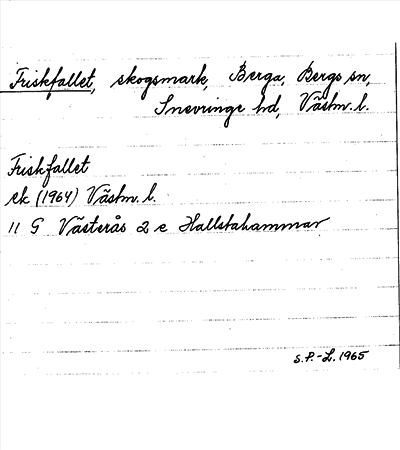 Friskfallet, skogsmark, Berga, Bergs sn,
Snevringe hd, Västm. l.
Friskfallet
ek (1964) Västm. l.
11 G Västerås 2 e Hallstahammar
S.P.-L. 1965